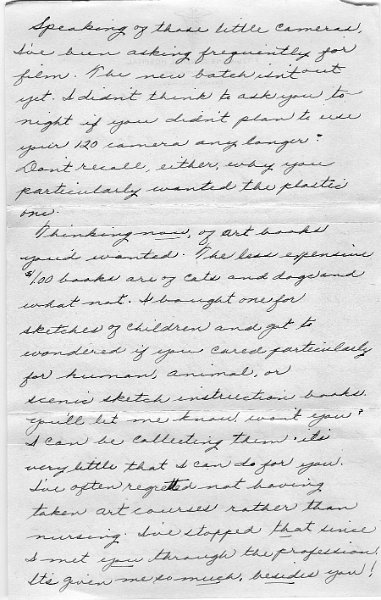 Speaking of those little cameras,
I've been asking frequently for
film. The new batch isn't out
yet. I didn't think to ask you to
night if you didn't plan to use
your 120 camera any longer?
Don't recall, either, why you
particularly wanted the plastic
one.
Thinking now, of art books
you'd wanted. The less expensive
$1.00 books are of cats and dogs and
what not. I bought one for
sketches of children and got to
wondered if you cared particularly
for human, animal, or
scenic sketch instruction books.
You'll let me know, won't you?
I can be collecting them, it's
very little that I can do for you.
I've often regretted not having
taken art courses rather than
nursing. I've stopped that since
I met you through the profession.
It's given me so much, besides you!